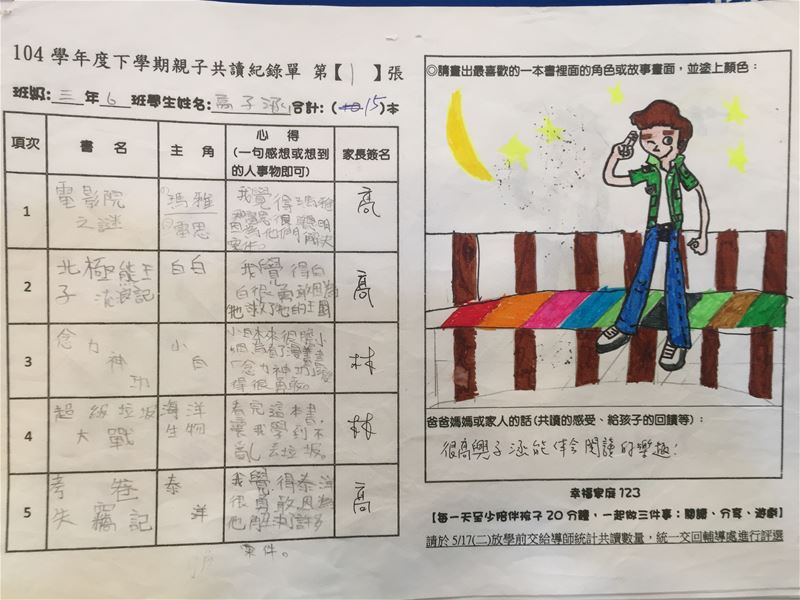 104 學年度下學期親子共讀紀錄單 第【1】張
班級:三年6班學生姓名:高子涵合計:(15)本
項次 書名 主角 心得 (一句感想或想到的人事物即可) 家長簽名
1 電影院之謎 瑪雅 雷思 我覺得瑪雅 很聰明 因為他們 案件。 高
2 北極熊王子流浪記 白白 我覺得白白很勇敢因為牠救了牠的王國 高
3 念力神功 小白 小白本來很膽小 看了漫畫書「念力神功」變得很勇敢。 林
4 超級垃圾大戰 海洋生物 看完這本書,讓我學到不亂丟垃圾。 林
5 考卷失竊記 泰洋 我覺得泰洋很勇敢因為他解決了許多案件。 高
◎請畫出最喜歡的一本書裡面的角色或故事畫面,並塗上顏色:
爸爸媽媽或家人的話(共讀的感受、給孩子的回饋等):
很高興子涵能体会閱讀的樂趣!
幸福家庭123
【每一天至少陪伴孩子20分鐘,一起做三件事:閱讀、分享、遊戲】
請於 5/17(二)放學前交給導師統計共讀數量,統一交回輔導處進行評選